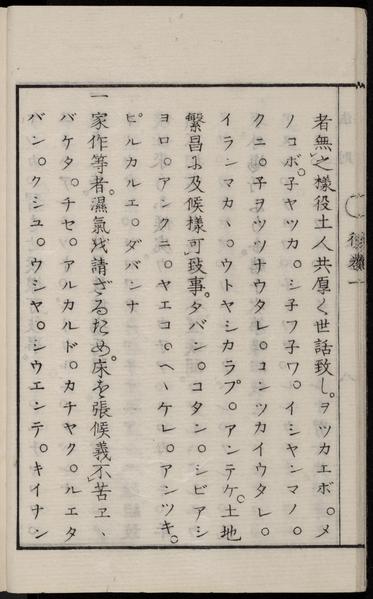 者無之樣役土人共厚く世話致し。ヲツカエボ。メ
ノコボ。子ヤツカ。シ子フ子ワ。イシヤンマノ。
クニ。子ヲツツナウタレ。コンツカイウタレ。
イランマカヽ。ウトヤシカラプ。アンテケ。土地
繁昌に及候樣可致事。タバン。コタン。シビアシ
ヨロ。アンクニ。ヤエコ。ヘヽケレ。アンツキ。
ピルカルエ。ダバンナ
一家作等者。濕氣を請ざるため。床を張候義不苦ヱ、
バケタ。チセ。アルカルド。カチヤク。ルエタ
バン。クシユ。ウシヤ。シウエンテ。キイナン